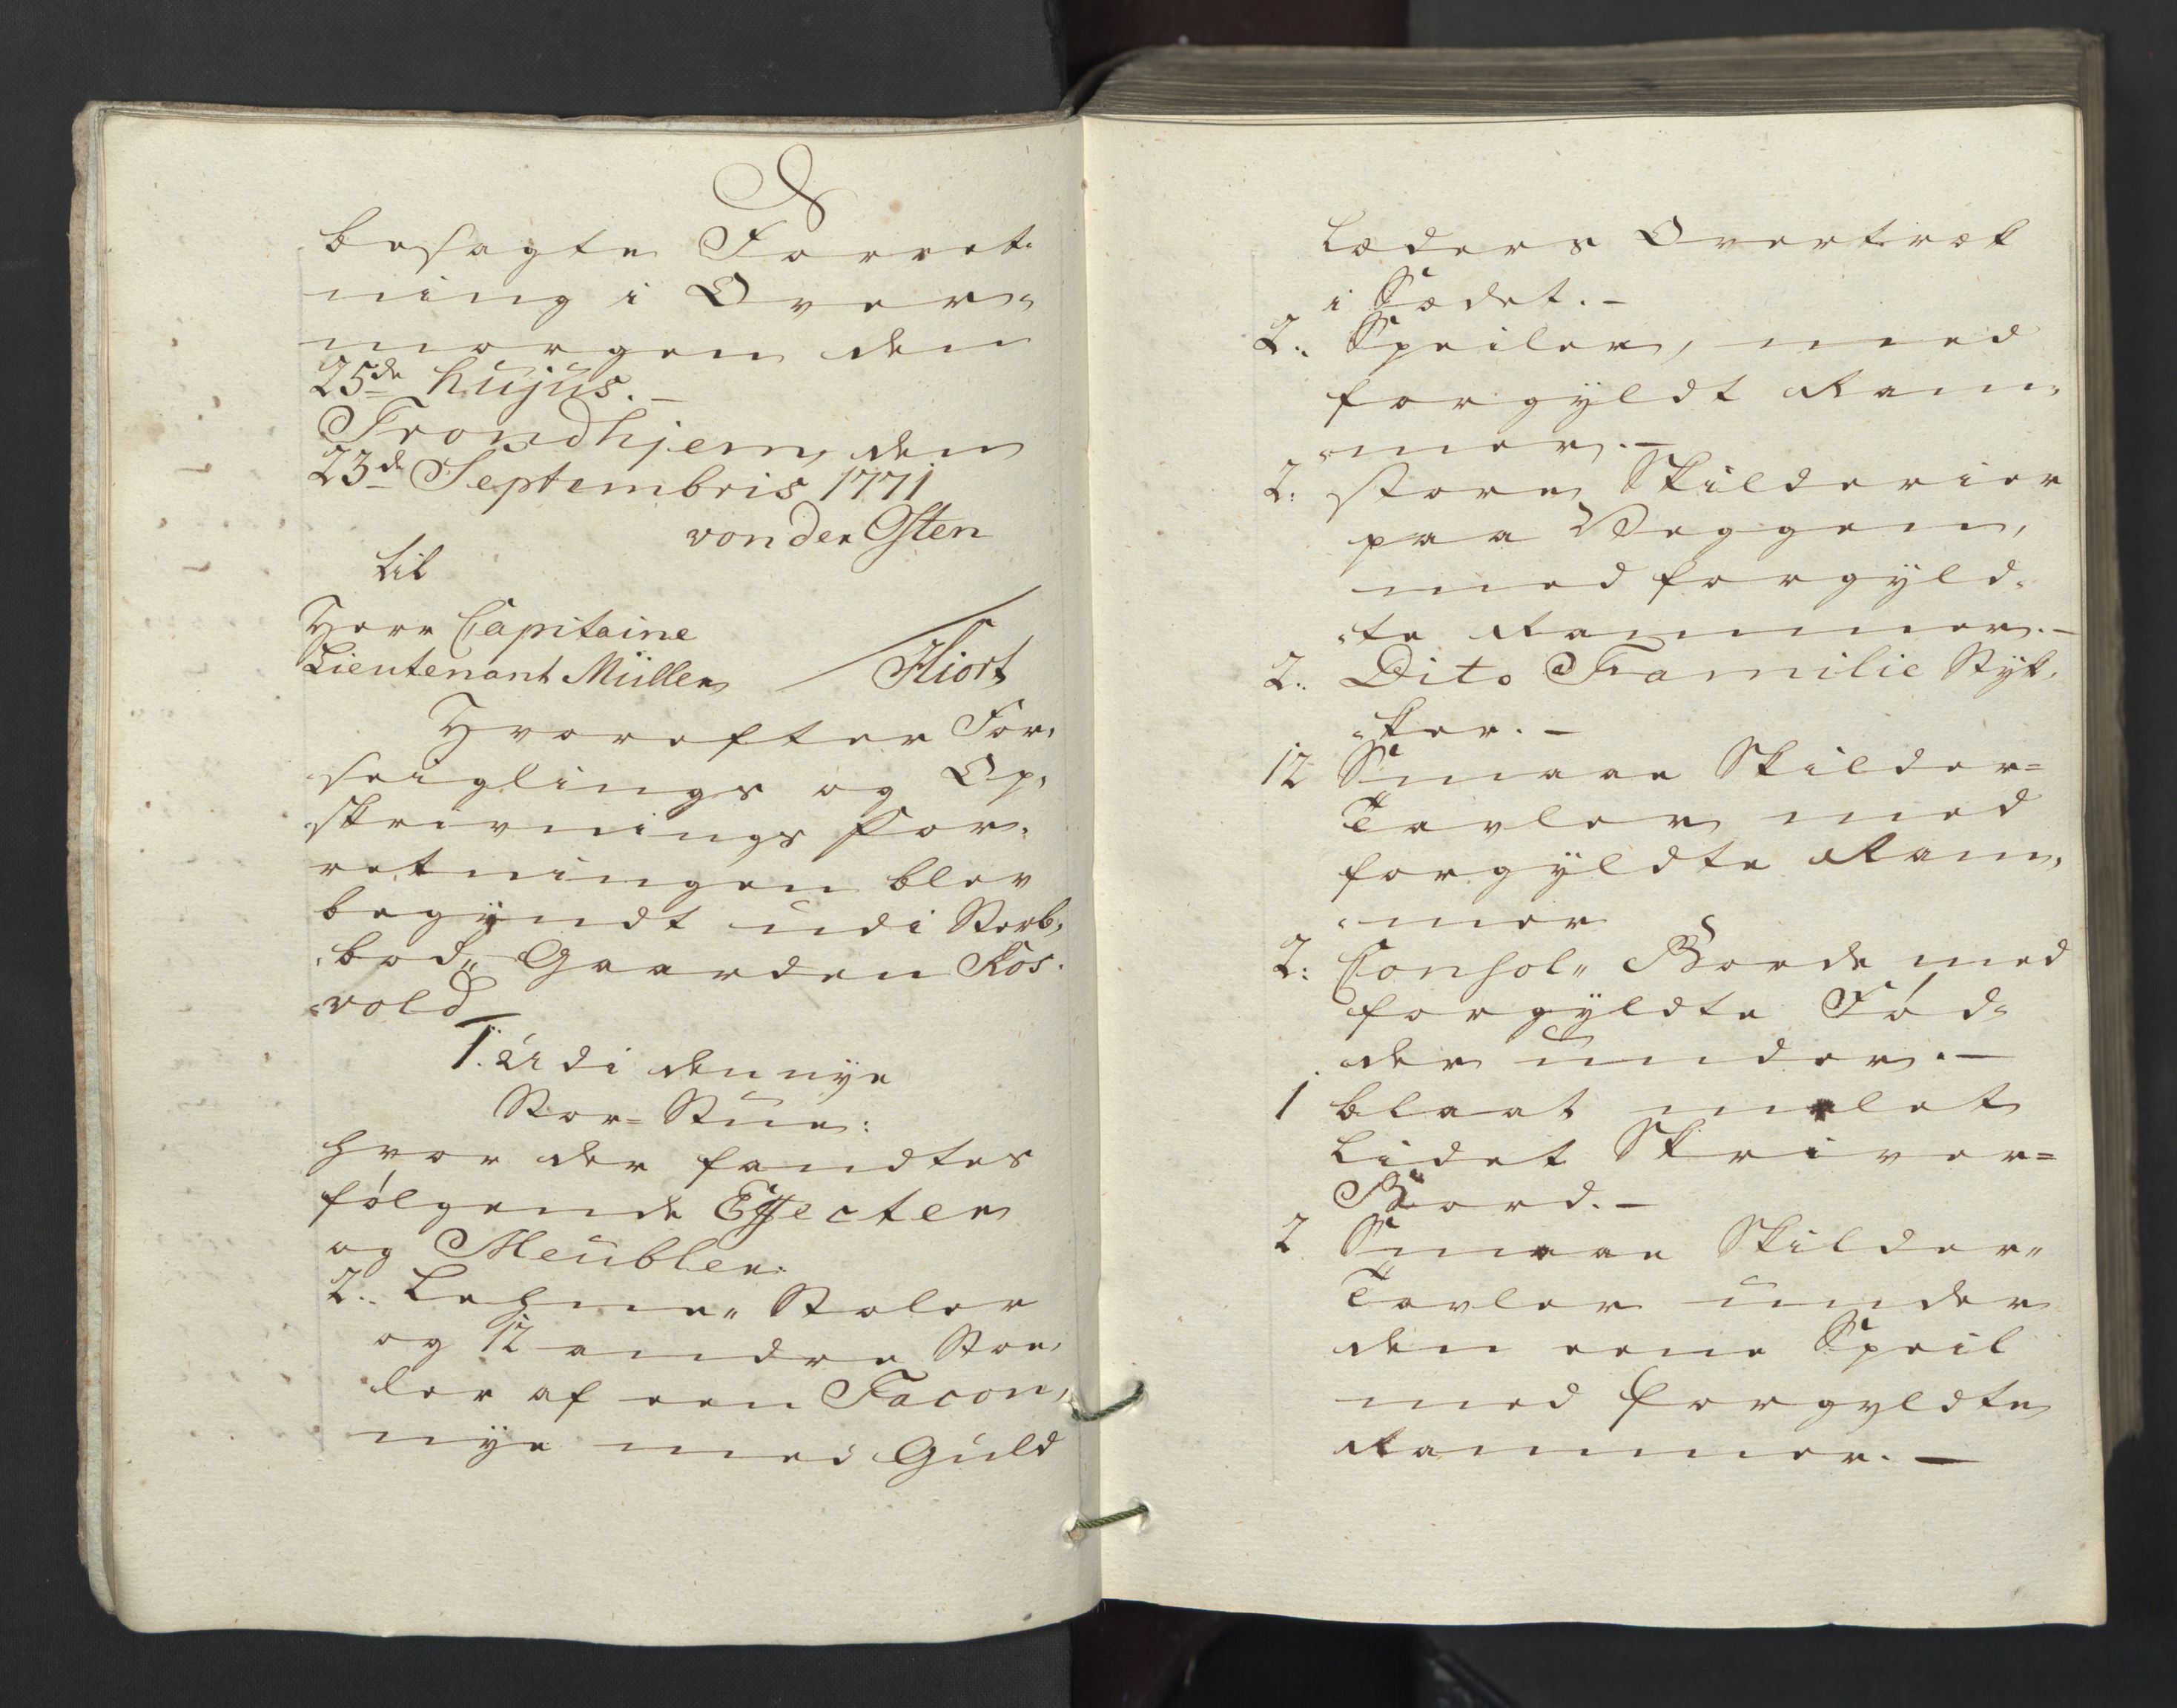 besagte Forret-
ning i Over-
morgen den
25de hujus. —
Trondhjem, den
23de Septembris 1771
von der Osten
til
Herr Capitaine
Lieutenant Müller / Hiort
Hvorefter For-
seiglings og Op-
skrivnings For-
retningen blev
begyndt udi Sterb-
boed„ Gaarden Ros-
vold
1. Udi den nye
Stor=Stue:
hvor der fandtes
følgende Effecter
og Meubler:
2. Lehne„ Stoler
og 12 andre Stoe-
ler af een Facon,
nye med Guld
Læders Overtræk
i Sædet. —
2. Speiler, med
forgyldt Ram-
mer. —
2. store Skilderier
paa Veggen,
med forgyld-
te Rammer. —
2. Dito Familie Styk-
ker. —
12 Smaae Skilder=
Tavler med
forgyldte Ram-
mer
2. Consol„ Borde med
forgyldte Fød-
der under. —
1 blaat malet
Lidet Skriver=
Bord. —
2 Smaae Skilder„
Tavler under
den eene Speil
med forgyldte
Rammer. —